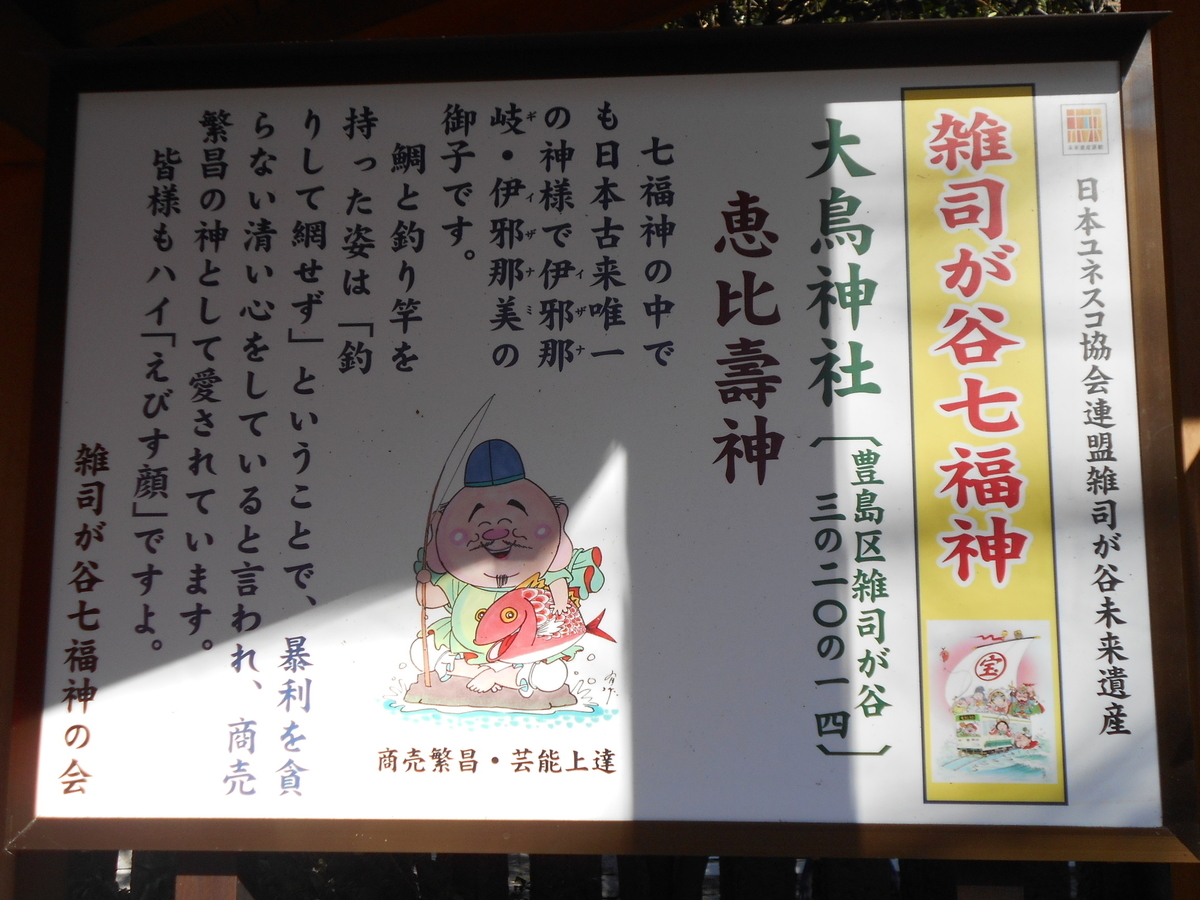 日本ユネスコ協会連盟雑司が谷未来遺産
雑司が谷七福神
宝
大鳥神社
〔豊島区雑司が谷
三の二〇の一四〕
恵比壽神
七福神の中で
も日本古来唯一
の神様で伊邪那
イザナ
岐・伊邪那美の
ギ イザナミ
御子です。
鯛と釣り竿を
持った姿は「釣
りして網せず」ということで、暴利を貪
らない清い心をしていると言われ、商売
繁昌の神として愛されています。
皆様もハイ「えびす顔」ですよ。
雑司が谷七福神の会
商売繁昌・芸能上達